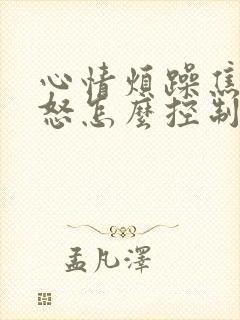 心情煩躁焦
怒怎麼控制
孟凡澤